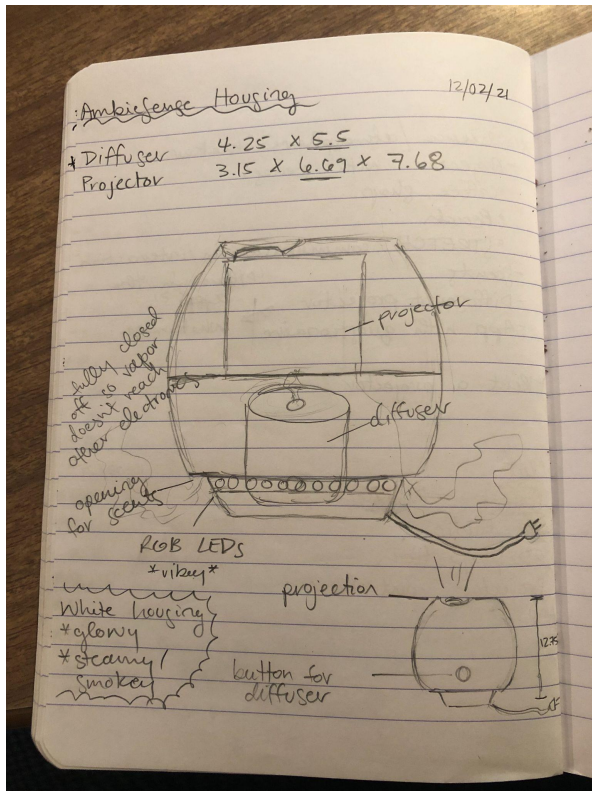 AmbieSense Housing
12/02/21
* Diffuser 4.25 x 5.5
Projector 3.15 x 6.69 x 7.68
projector
fully closed
off so vapor
doesn't reach
other electronics
diffuser
opening
for scents
RGB LEDs
*vibey*
projection
White housing
*glowy
*steamy/
smokey
12.75
button for
diffuser